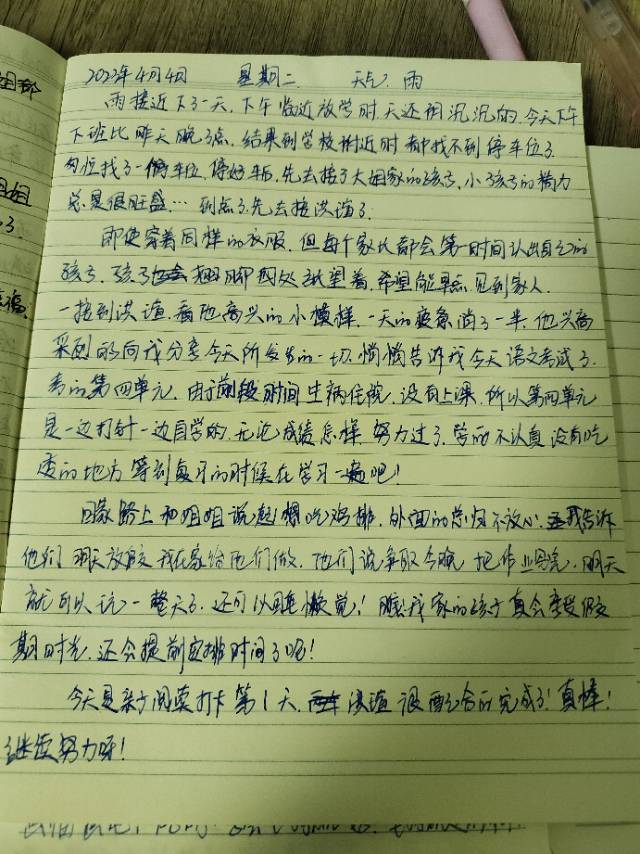 2023年4月4日 星期二 天气:雨
雨接近下了一天,下午临近放学时,天还阴沉沉的,今天下午
下班比昨天晚了点,结果到学校附近时都找不到停车位了
勿忙找了一个车位,停好车后,先去接了大姐家的孩子,小孩子的精力
总是很旺盛… 到点了,先去接洪谊了.
即使穿着同样的衣服,但每个家长都会第一时间认出自己的
孩子,孩子也会翘脚四处张望着,希望能早点见到家人.
一接到洪谊,看他高兴的小模样,一天的疲惫消了一半,他兴高
采烈的向我分享今天所发生的一切,悄悄告诉我今天语文考试了.
考的第四单元,由于前段时间生病住院,没有上课,所以第四单元
是一边打针一边自学的,无论成绩怎样,努力过了,学的不认真没有吃
透的地方等到复习的时候在学习一遍吧!
回家路上和姐姐说起想吃鸡排,外面的总归不放心,我告诉
他们明天放假我在家给他们做,他们说争取今晚把作业写完,明天
就可以玩一整天了,还可以睡懒觉!瞧我家的孩子真会享受假
期时光,还会提前安排时间了呢!
今天是亲子阅读打卡第1天,洪谊很配合的完成了!真棒!
继续努力呀!